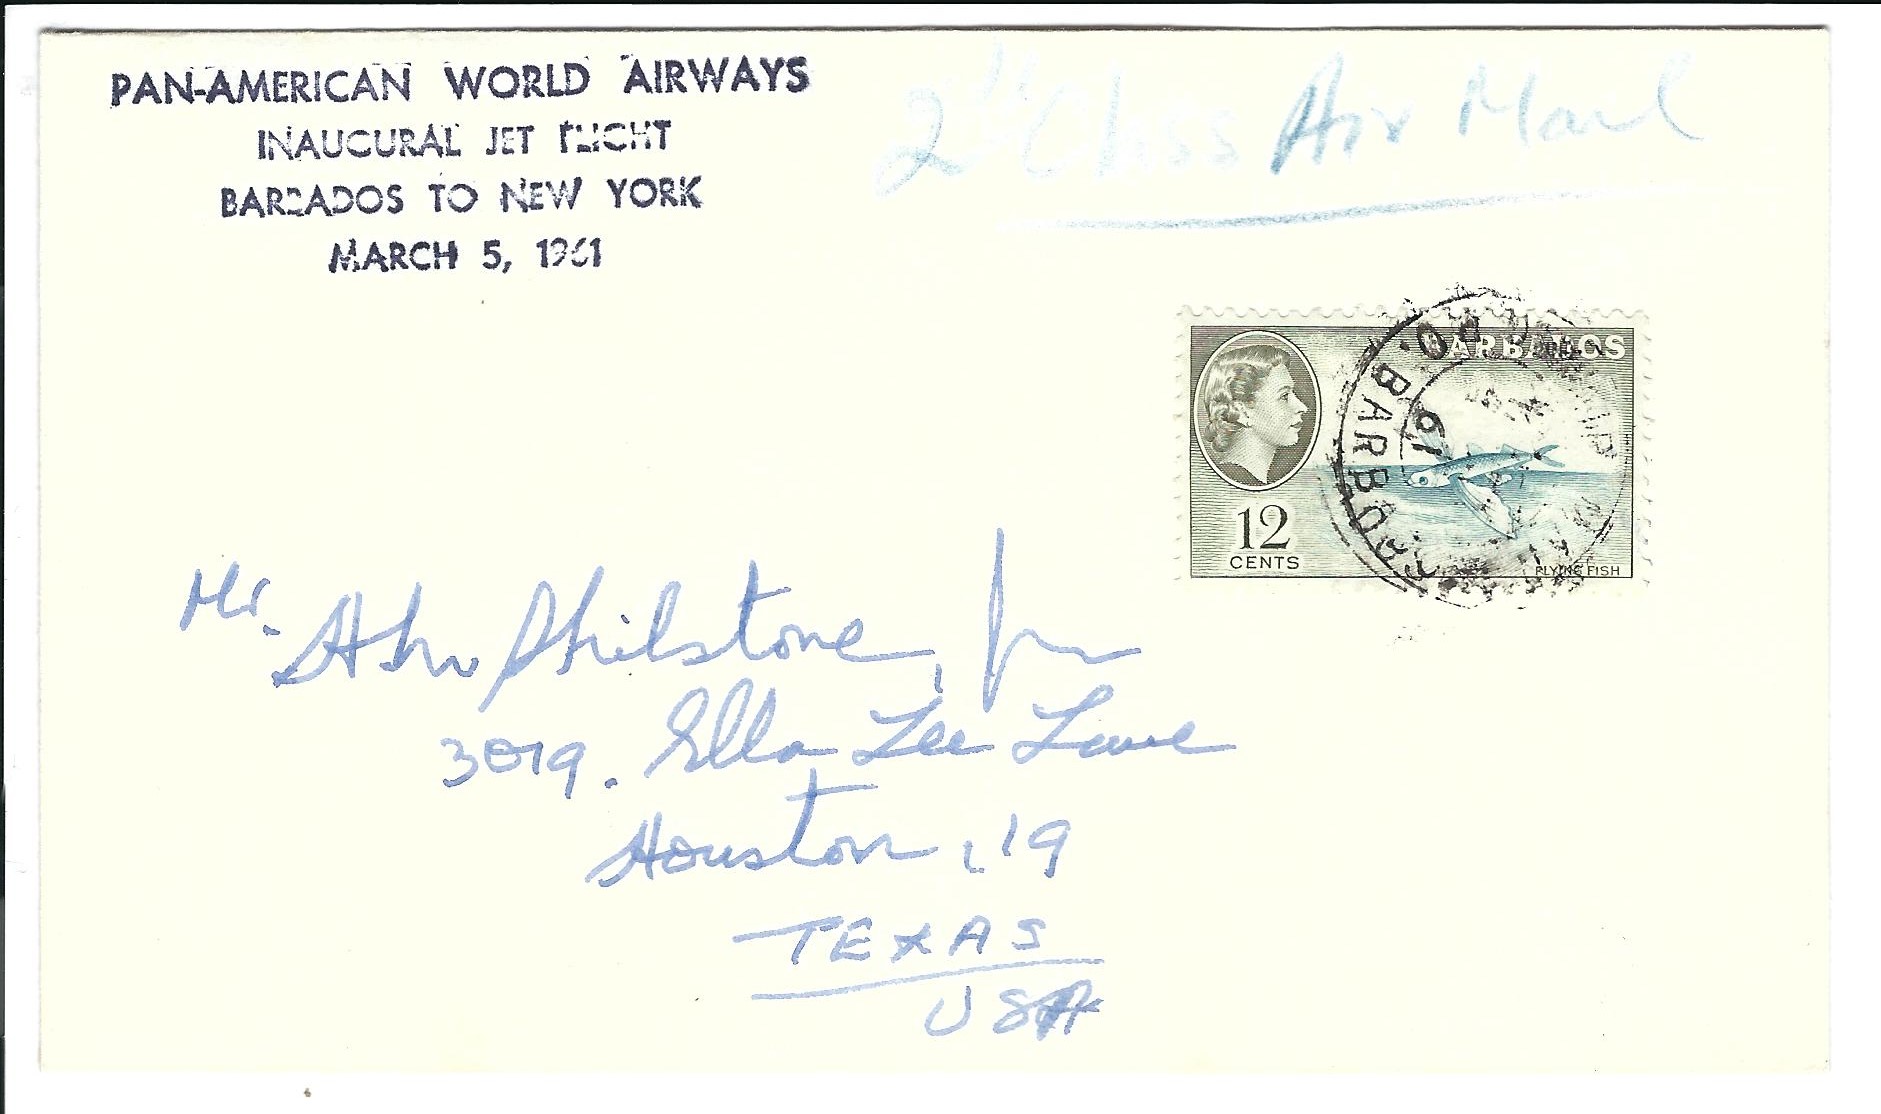 PAN-AMERICAN WORLD AIRWAYS
INAUGURAL JET FLIGHT
BARBADOS TO NEW YORK
MARCH 5, 1961
2nd Class Air Mail
BARBADOS
12
CENTS
FLYING FISH
BARBADOS
61
Mr. Ashw Philstone, Jr
3019. Ella Lee Lane
Houston, 19
TEXAS
USA